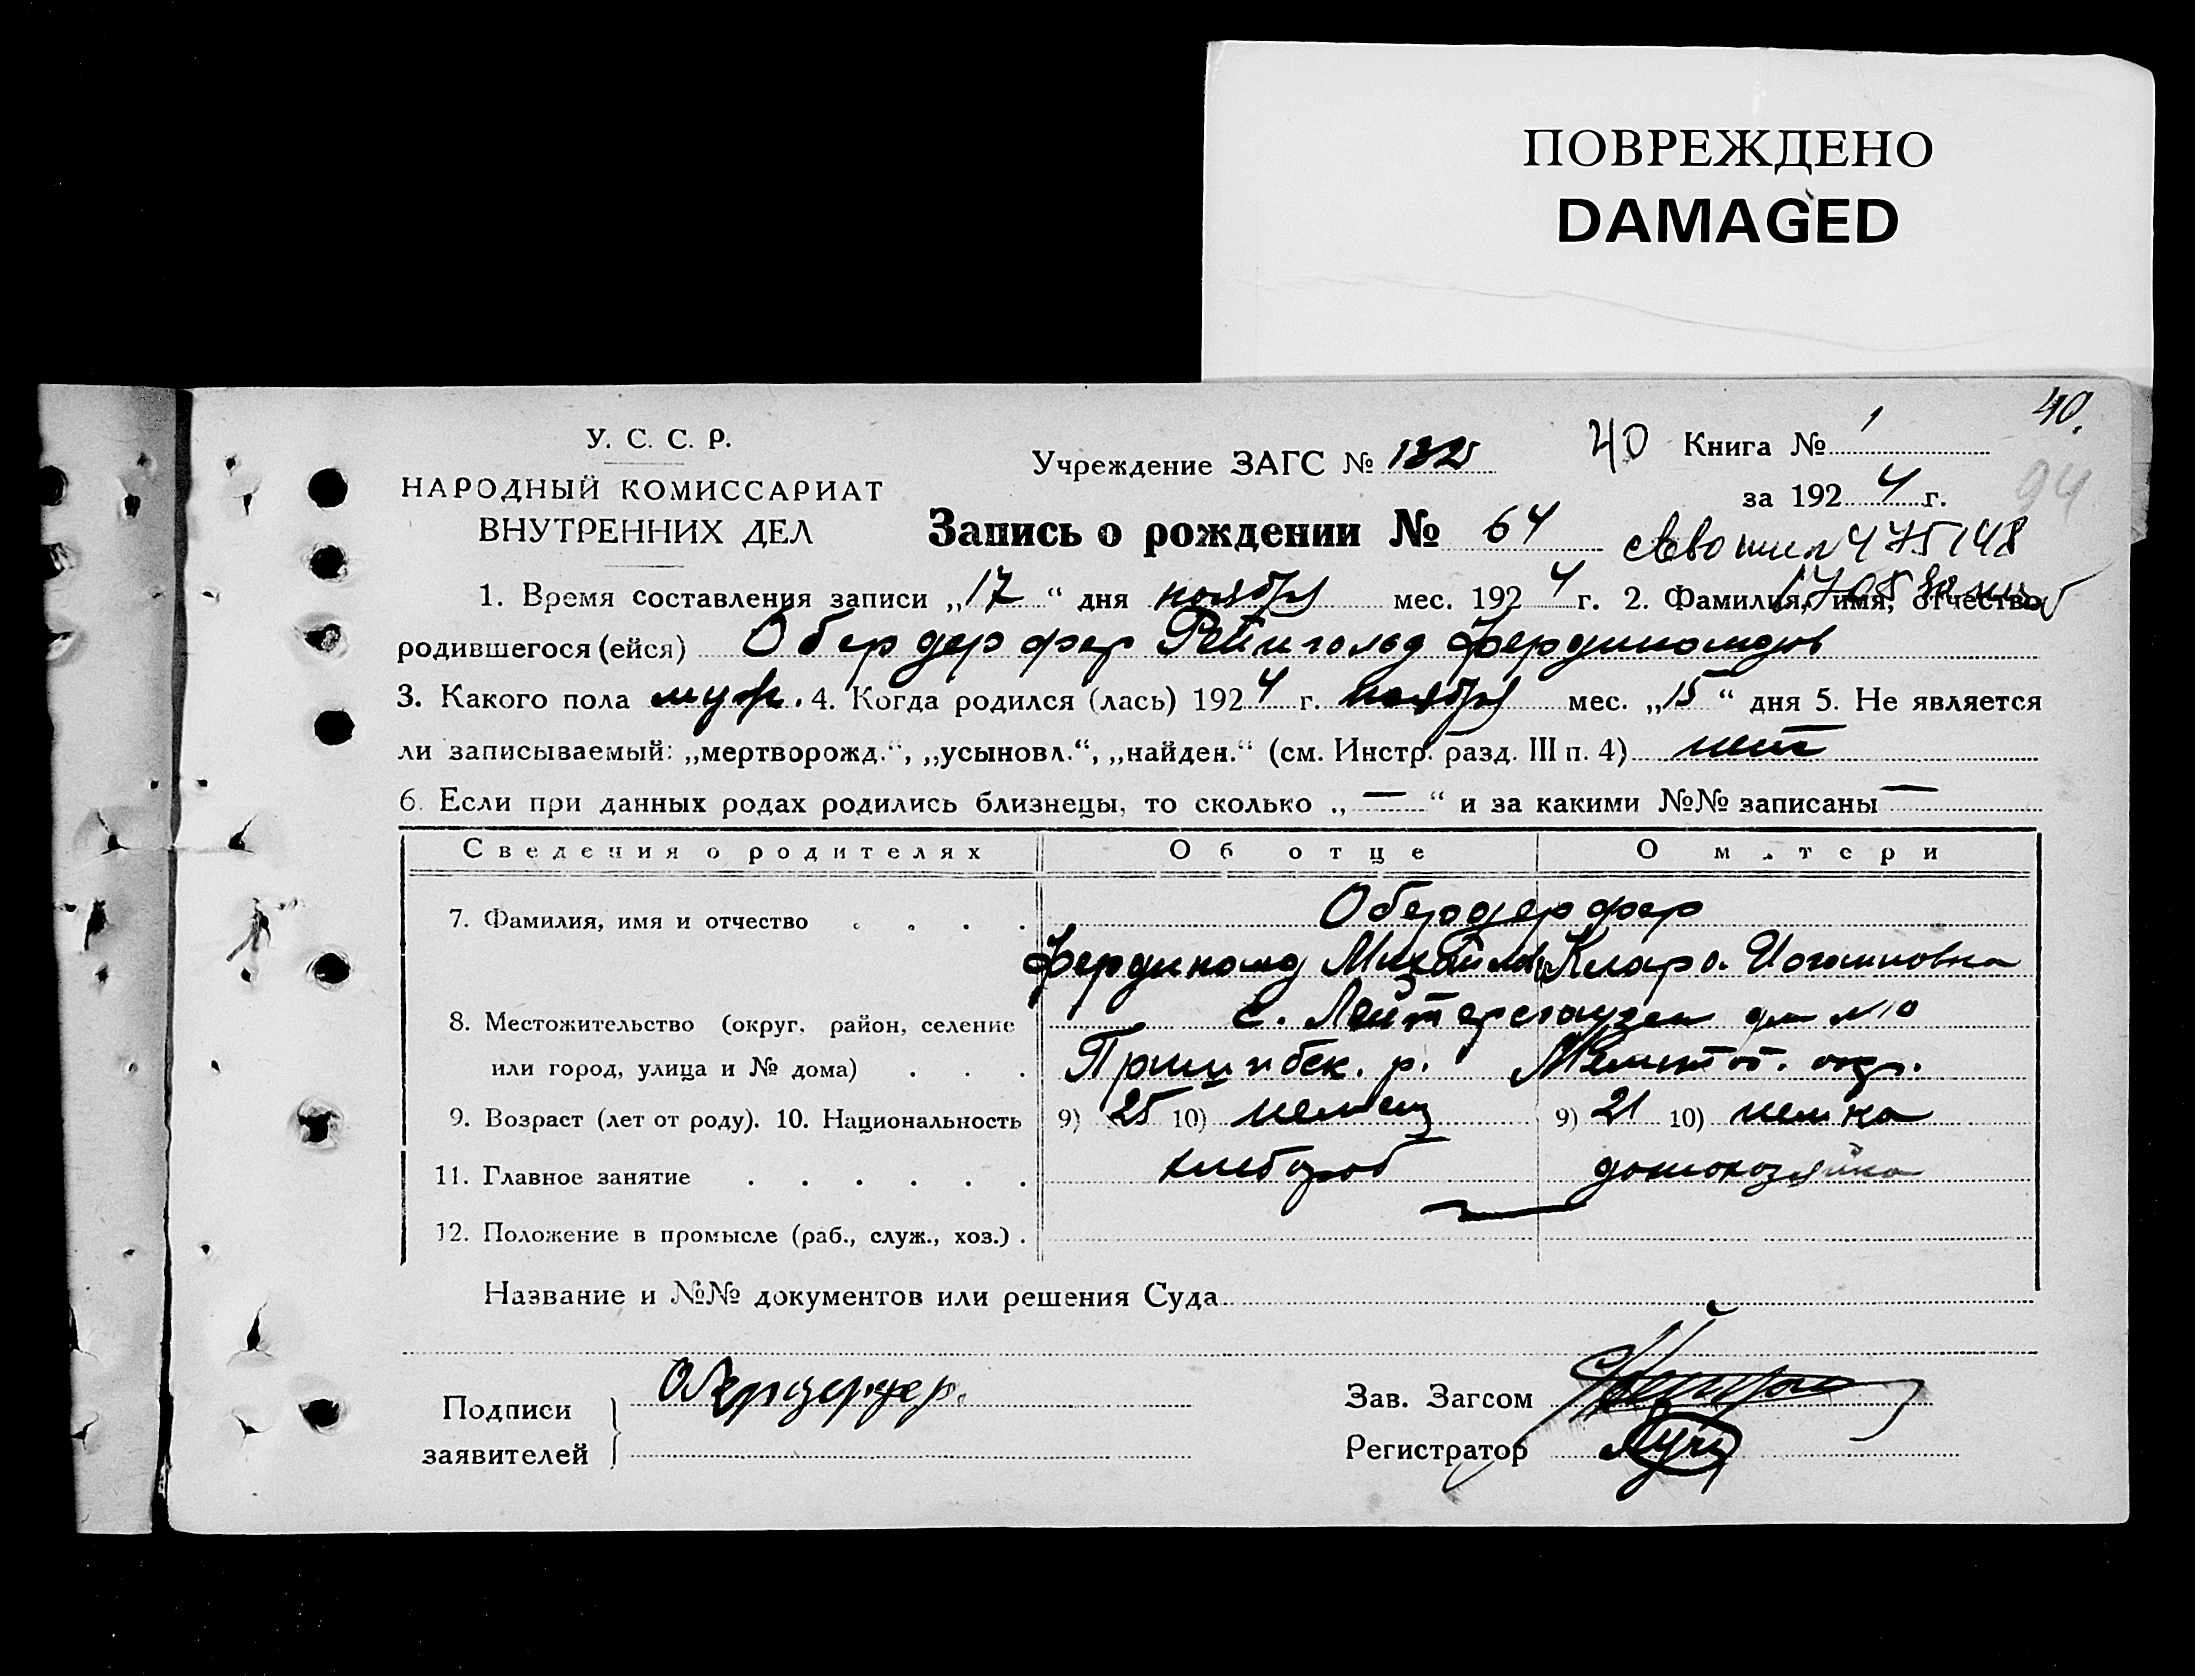 ПОВРЕЖДЕНО
DAMAGED
40.
У. С. С. Р.
НАРОДНЫЙ КОМИССАРИАТ
ВНУТРЕННИХ ДЕЛ
Учреждение ЗАГС № 132
40 Книга № 1
за 1924 г.
94
Запись о рождении № 64
475148
1. Время составления записи „17“ дня ноября мес. 1924 г. 2. Фамилия, имя, отчество
родившегося (ейся) Обердерфер Рейнгольд Фердинандов
3. Какого пола муж. 4. Когда родился (лась) 1924 г. ноября мес. „15“ дня 5. Не является
ли записываемый: „мертворожд.“, „усыновл.“, „найден.“ (см. Инстр. разд. III п. 4) нет
6. Если при данных родах родились близнецы, то сколько „—“ и за какими №№ записаны —
Сведения о родителях Об отце О матери
7. Фамилия, имя и отчество . . . . Обердерфер
Фердинанд Михайлов Клара Иоганновна
8. Местожительство (округ, район, селение с. Лейтерсгаузен дом №10
или город, улица и № дома) . . . Пришибск. р. Мелитоп. окр.
9. Возраст (лет от роду). 10. Национальность 9) 25 10) немец 9) 21 10) немка
11. Главное занятие . . . . . . хлебороб домохозяйка
12. Положение в промысле (раб., служ., хоз.) .
Название и №№ документов или решения Суда
Подписи
заявителей
Обердерфер.
Зав. Загсом
Регистратор